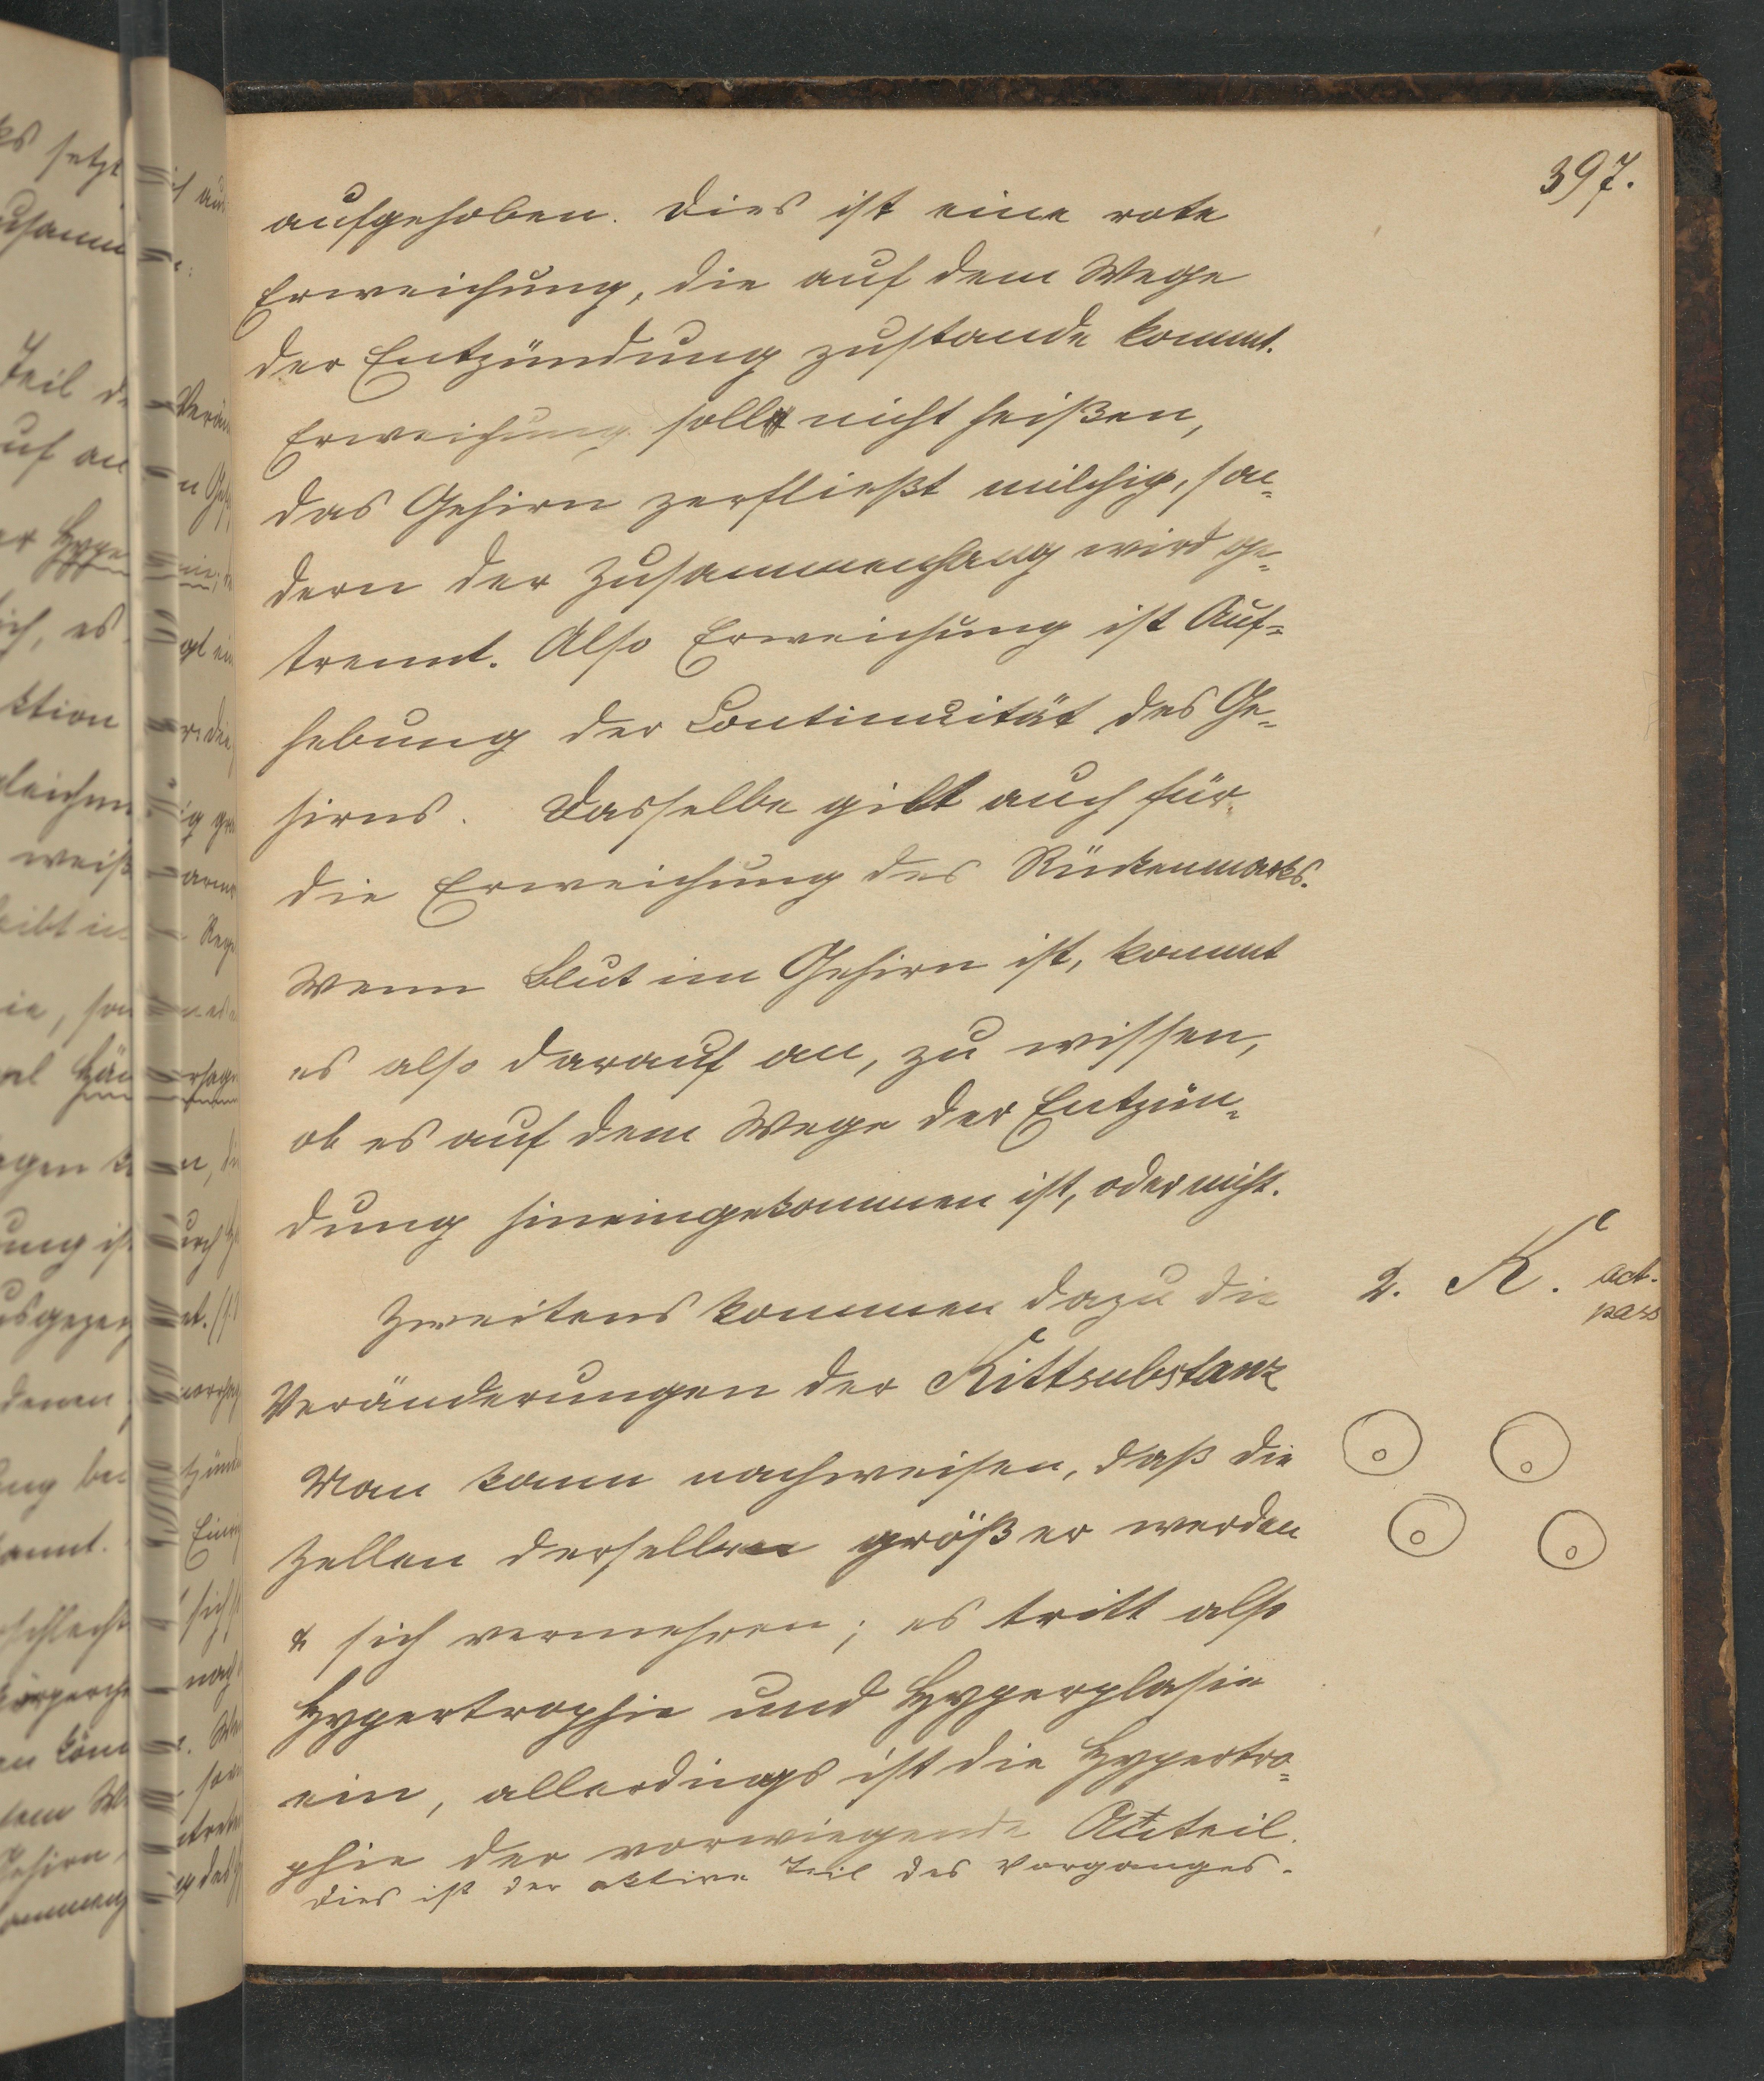 397.
aufgehoben. Dies ist eine rote
Erweichung, die auf dem Wege
der Entzündung zustande kommt.
Erweichung soll nicht heißen,
das Gehirn zerfließt milchig, son=
dern der Zusammenhang wird ge=
trennt. Also Erweichung ist Auf=
hebung der Continuität des Ge=
hirns. Dasselbe gilt auch für
die Erweichung des Rückenmarks.
Wenn Blut im Gehirn ist, kommt
es also darauf an, zu wissen,
ob es auf dem Wege der Entzün=
dung hineingekommen ist, oder nicht.
Zweitens kommen dazu die
2. K. act.
pass
Veränderungen der Kittsubstanz
Man kann nachweisen, daß die
Zellen derselben größer werden
& sich vermehren; es tritt also
Hypertrophie und Hyperplasie
ein, allerdings ist die Hypertro=
phie der vorwiegende Anteil.
Dies ist der aktive Teil des Vorganges.